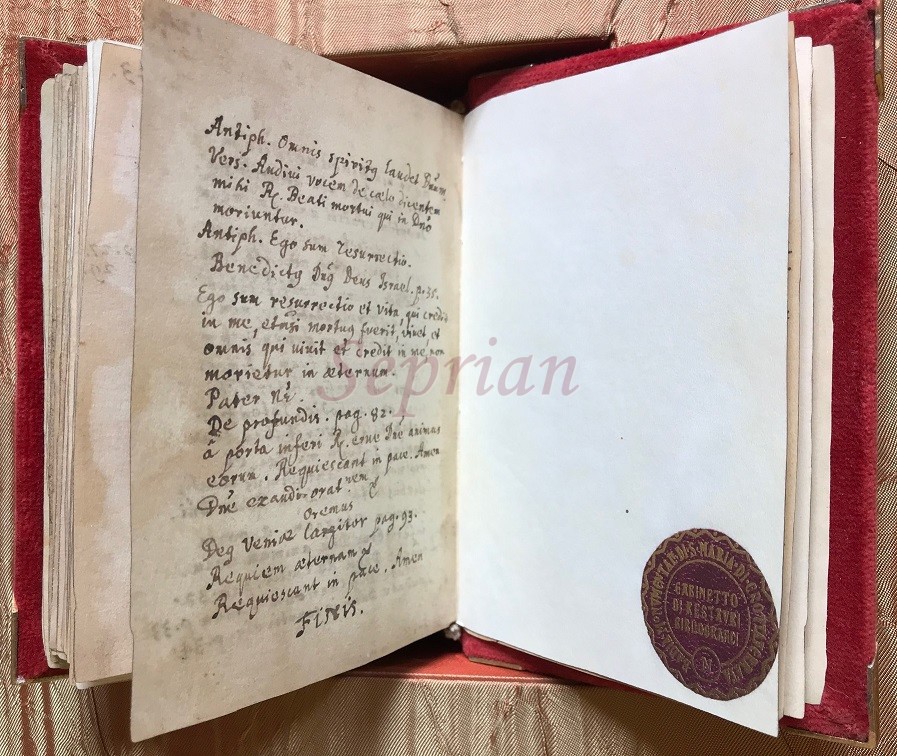 Antiph. Omnis spiritꝯ laudet Dñum
Vers. Audivi vocem de cœlo dicentem
mihi ℟. Beati mortui qui in Dnō
moriuntur.
Antiph. Ego sum resurrectio.
Benedictꝯ Dnꝯ Deus Israel. p. 35.
Ego sum resurrectio et vita, qui credit
in me, etiāsi mortuꝯ fuerit, viuet, et
omnis qui uiuit et credit in me, non
morietur in æternum.
Pater
De profundis. pag. 82.
â porta inferi ℟. erue Dnē animas
eorum. Requiescant in pace. Amen
Dnē exaudi orat.nem
Oremus
Deꝯ veniæ largitor pag. 93.
Requiem æternam
Requiescant in pace. Amen
Finis.
Seprian
MARIA DI
GABINETTO
DI RESTAURI
BIBLIOGRAFICI